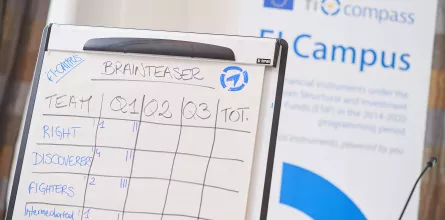 FI CAMPUS
BRAINTEASER
TEAM Q1 Q2 Q3 TOT.
RIGHT 1 II
DISCOVERERS 4 II
FIGHTERS 2 III
Intermediated 1
fi compass
FI Campus
financial instruments under the
European Structural and Investment
Funds (ESIF) in the 2014-2020
programming period
instruments, powered by you